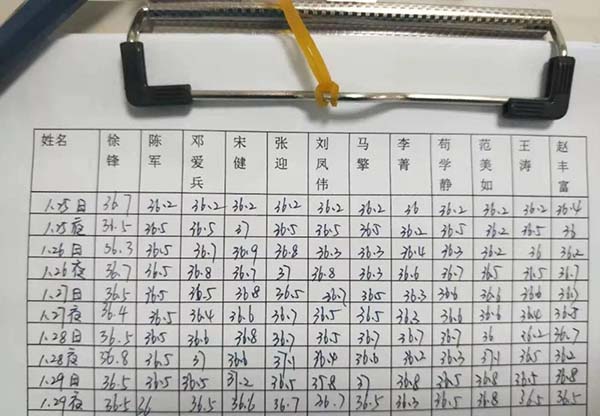 姓名 徐锋 陈军 邓爱兵 宋健 张迎 刘凤伟 马擎 李菁 苟学静 范美如 王涛 赵丰富
1.25日 36.7 36.2 36.2 36.2 36.2 36.2 36.2 36 36.2 36.2 36.2 36.4
1.25夜 36.5 36.5 36.5 37 36.5 36.5 36.5 36.2 36.5 36.2 36.5 36
1.26日 36.3 36.5 36.7 36.9 36.8 36.3 36.3 36.4 36.3 36.2 36 36.2
1.26夜 36.7 36.5 36.8 36.7 37 36.8 36.3 36.6 36.7 36.5 36.5 36.7
1.27日 36.5 36.5 36.5 36.8 36.5 36.7 36.5 36.3 36.6 36.6 36.6
1.27夜 36.4 36.5 36.4 36.6 36.7 36.5 36.5 36.6 36.6 36.4 36.5
1.28日 36.5 36.5 36.6 36.8 36.7 36.5 36.7 36.7 36.7 36 36.2 36.7
1.28夜 36.8 36.5 37 36.6 37.1 36.4 36.6 36.2 36.3 37.1 36.5 36.2
1.29日 36.5 36.5 36.5 37.2 36.5 35.8 37 36.8 36.5 36.8 36.5 36.8
1.29夜 36.5 36 36.5 36.6 36.7 36.7 36.5 36.3 36.5 36.8 36.5 36.5